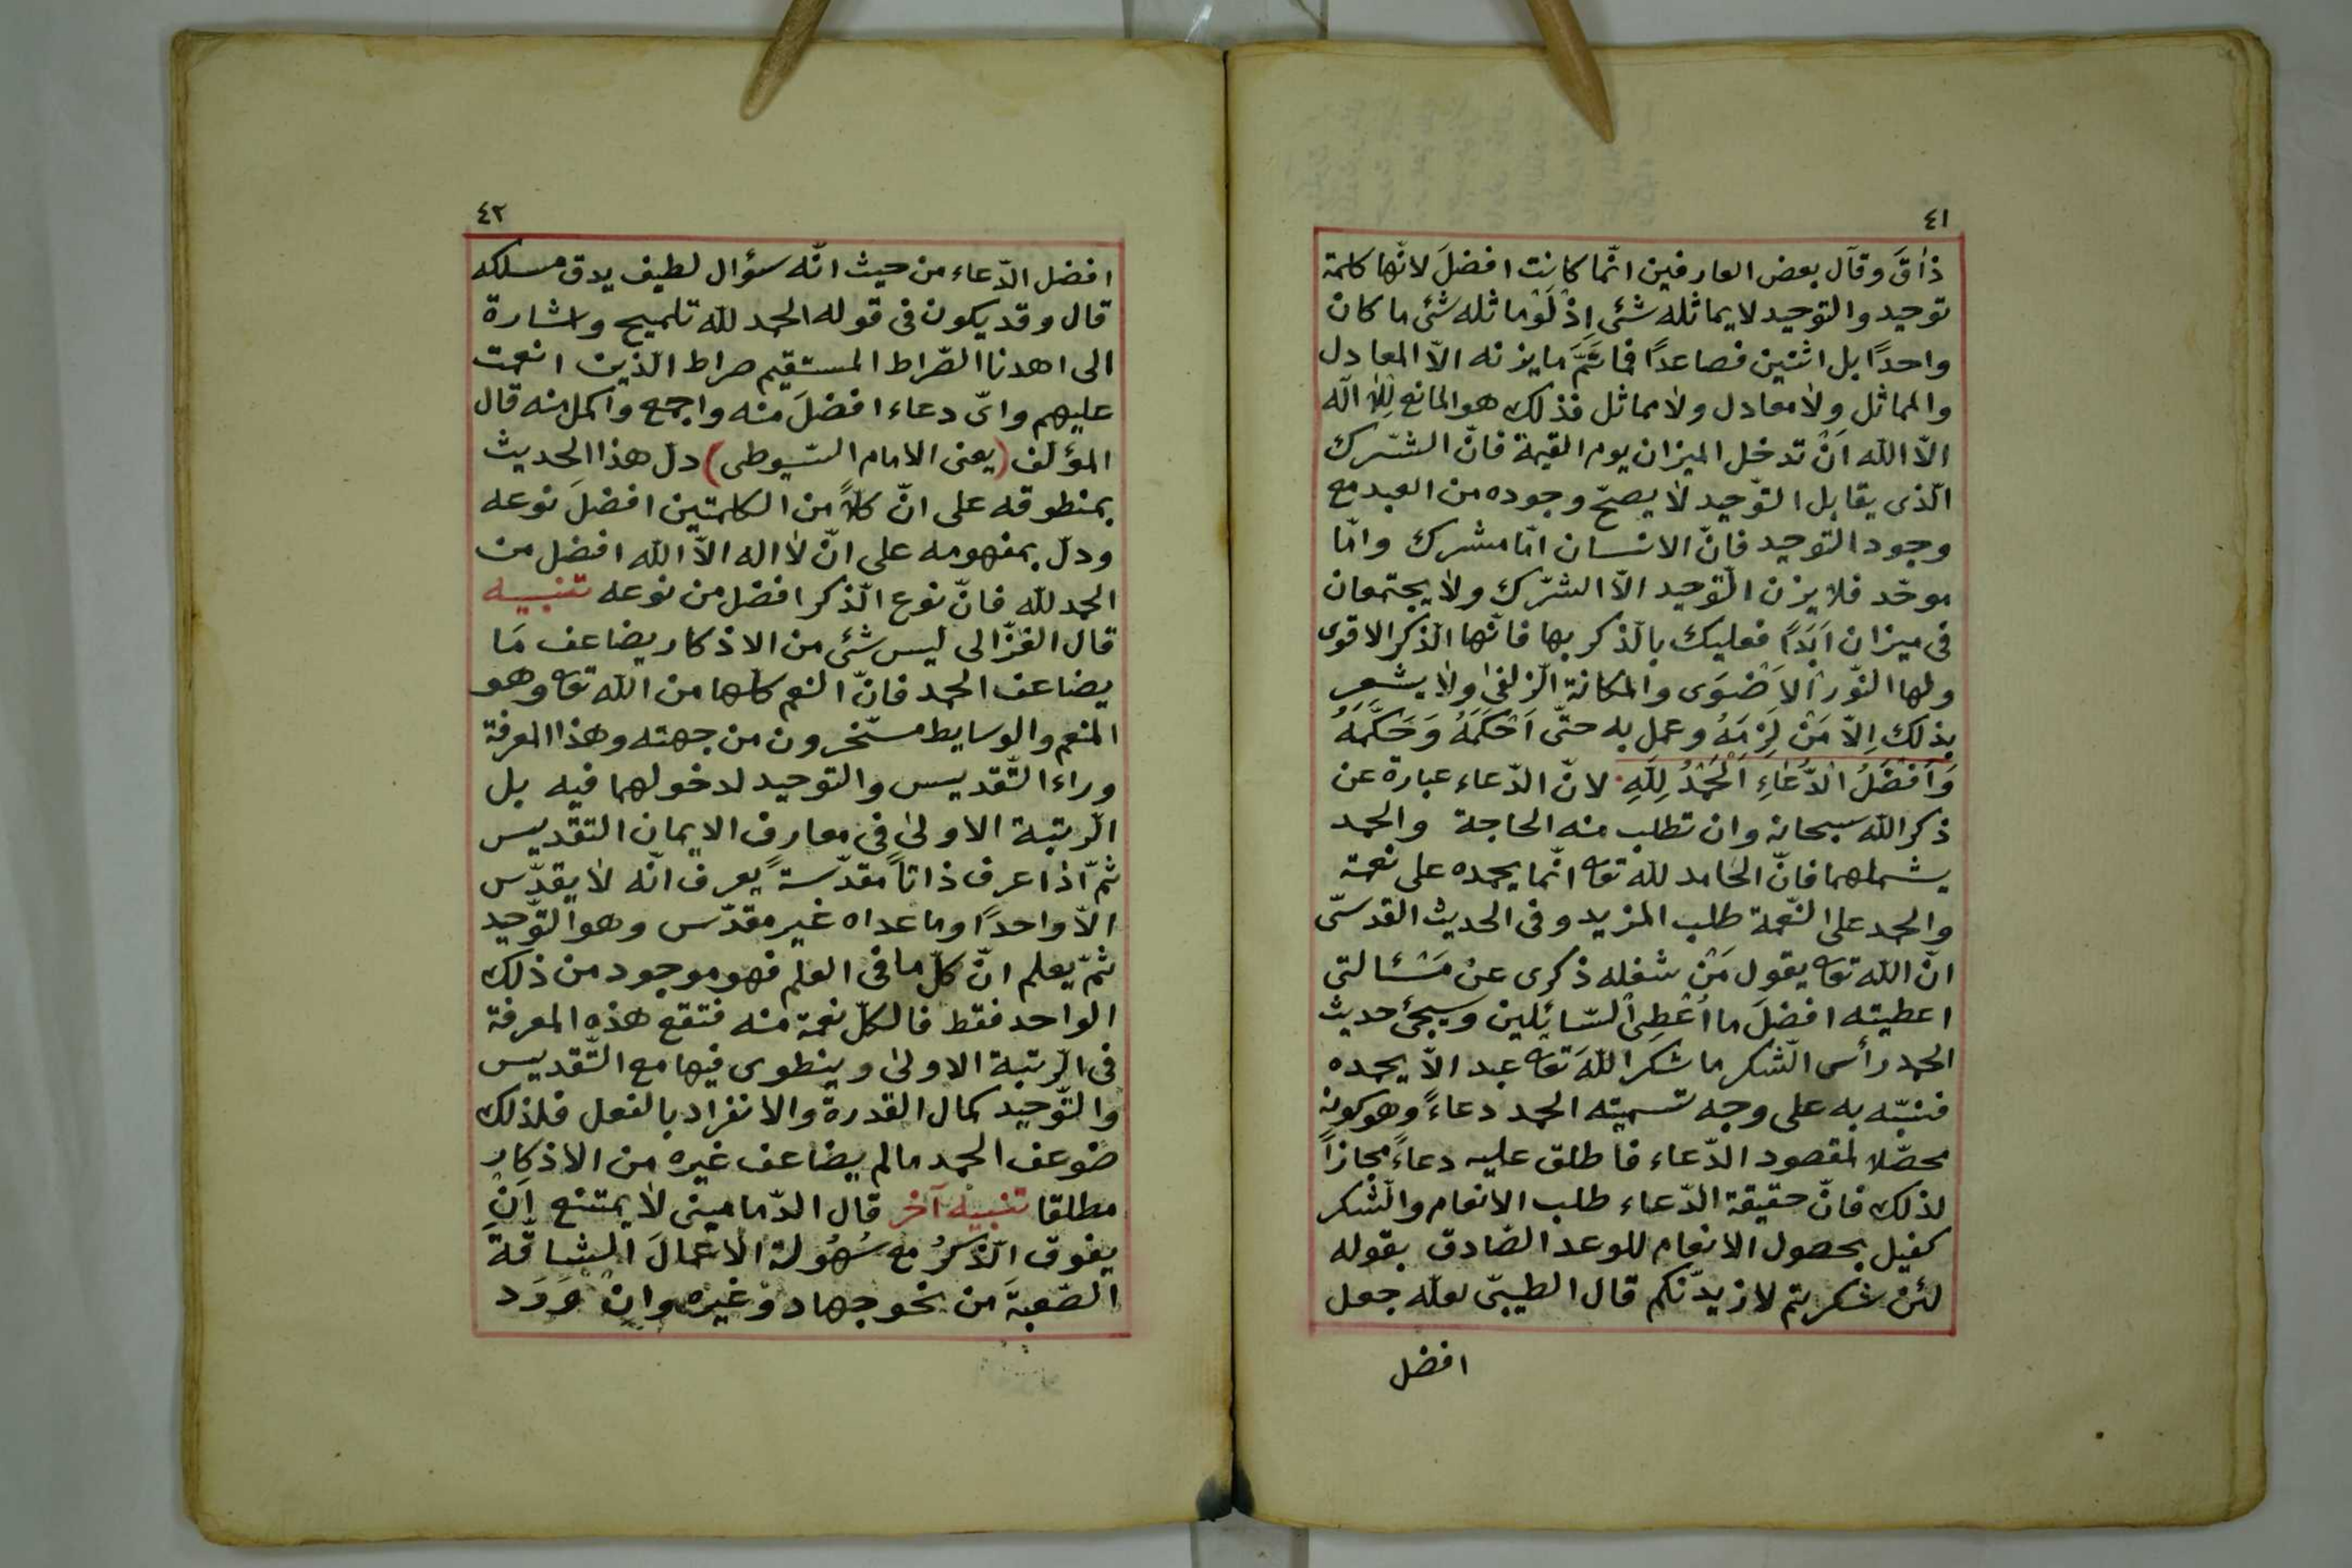 ٤١
ذاقَ وقال بعض العارفين انّما كانت افضلَ لانّها كلمة
توحيد والتوحيد لا يماثله شئ اِذْ لَوْ ماثله شئ ما كان
واحدًا بل اثنين فصاعدًا فما ثَمَّ ما يزنه الّا المعادل
والمماثل ولا معادل ولا مماثل فذلك هو المانع للا اله
الّا الله اَنْ تدخل الميزان يوم القيمة فانّ الشّرك
الّذى يقابل التّوحيد لا يصحّ وجوده من العبد مع
وجود التوحيد فانّ الانسان امّا مشرك وامّا
موحّد فلا يزن التّوحيد الّا الشّرك ولا يجتمعان
فى ميزان اَبَدًا فعليك بالذكر بها فانّها الذكر الاقوى
ولها النّور الاَضْوَى والمكانة الزّلفى ولا يشعر
بذلك اِلّا مَنْ لَزِمَهُ وعمل به حتّى اَحْكَمَهُ وَحَكَّمَهُ
وَاَفْضَلُ الدُّعَاءِ اَلْحَمْدُ لِلّهِ لانّ الدّعاء عبارة عن
ذكر الله سبحانه وان تطلب منه الحاجة والحمد
يشملهما فانّ الحامد لله تعه انّما يحمده على نعمة
والحمد على النّعمة طلب المزيد وفى الحديث القدسىّ
انّ الله تعه يقول مَنْ شغله ذكرى عن مَسْئالتى
اعطيته افضلَ ما اُعْطِى السّائلين وسيجئ حديث
الحمد رأس الشّكر ما شكر اللهَ تعه عبد الّا يحمده
فنبّه به على وجه تسميته الحمد دعاءً وهو كونه
محصّلا لمقصود الدّعاء فاطلق عليه دعاءً مجازاً
لذلك فانّ حقيقة الدّعاء طلب الانعام والشّكر
كفيل بحصول الانعام للوعد الصّادق بقوله
لئن شكرتم لازيدنّكم قال الطيبىّ لعلّه جعل
افضل
٤٢
افضل الدّعاء من حيث انّه سؤال لطيف يدق مسلكه
قال وقد يكون فى قوله الحمد لله تلميح واشارة
الى اهدنا الصّراط المستقيم صراط الّذين انعمت
عليهم واىّ دعاء افضلَ منه واجمع واكمل منه قال
المؤلّف (يعنى الامام السّيوطى) دلّ هذا الحديث
بمنطوقه على انّ كلّاً من الكلمتين افضلَ نوعه
ودلّ بمفهومه على انّ لا اله الّا الله افضل من
الحمد لله فانّ نوع الّذكر افضل من نوعه تنبيه
قال الغزّالى ليس شئ من الاذكار يضاعف مَا
يضاعف الحمد فانّ النعم كلها من الله تعه وهو
المنعم والوسايط مسخّرون من جهته وهذا المعرفة
وراء التّقديس والتوحيد لدخولهما فيه بل
الرّتبة الاولى فى معارف الايمان التقديس
ثمّ اذا عرف ذاتاً مقدّسةً يعرف انّه لا يقدّس
الّا واحدًا وما عداه غير مقدّس وهو التّوحيد
ثمّ يعلم انّ كلّ ما فى العلم فهو موجود من ذلك
الواحد فقط فالكلّ نعمة منه فتقع هذه المعرفة
فى الرّتبة الاولى وينطوى فيها مع التّقديس
والتّوحيد كمال القدرة والانفراد بالفعل فلذلك
ضوعف الحمد مالم يضاعف غيره من الاذكار
مطلقا تنبيه آخر قال الدّمامينى لا يمتنع اَنْ
يفوق الّذكرُ مع سُهُولة الاعمالَ الشاقّة
الصّعبةَ من نحو جهاد وغيره وانْ وَرَد